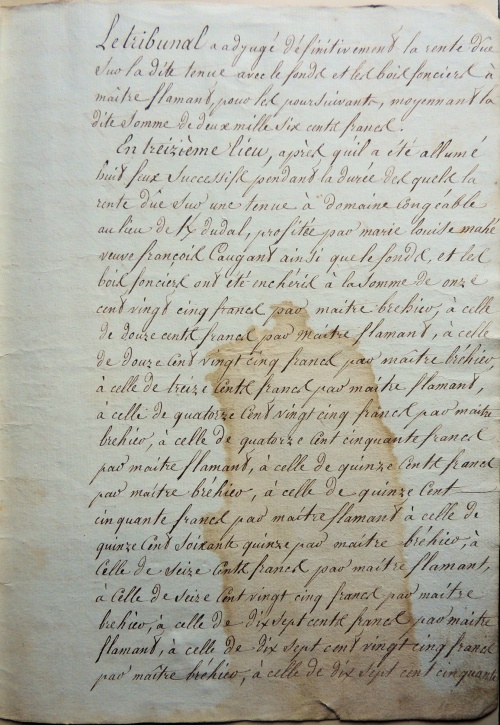 Le tribunal a adjugé définitivement la rente dûe
sur la dite tenue avec le fonds et les bois fonciers à
maître flamant, pour les poursuivants, moyennant la
dite somme de deux mille six cents francs.
En treizième lieu, après qu'il a été allumé
huit feux successifs pendant la durée des quels la
rente dûe sur une tenue à domaine congéable
au lieu de dudal, profitée par marie louise mahé
veuve françois Caugant ainsi que le fonds, et les
bois fonciers ont été enchéris à la somme de onze
cent vingt cinq francs par maître bréhier, à celle
de douze cents francs par maître flamant, à celle
de douze cent vingt cinq francs par maître bréhier,
à celle de treize cents francs par maître flamant,
à celle de quatorze cent vingt cinq francs par maître
bréhier, à celle de quatorze cent cinquante francs
par maître flamant, à celle de quinze cents francs
par maître bréhier, à celle de quinze cent
cinquante francs par maître flamant à celle de
quinze cent soixante quinze par maître bréhier, à
celle de seize cents francs par maître flamant,
à celle de seize cent vingt cinq francs par maître
bréhier, à celle de dix sept cents francs par maître
flamant, à celle de dix sept cent vingt cinq francs
par maître bréhier, à celle de dix sept cent cinquante